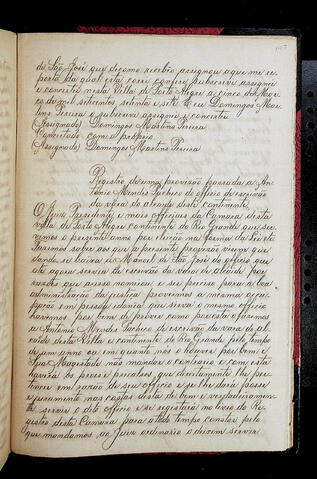 de São José que de como recebeo assignou a que me re
porto da qual esta corri conferi subscrevi assignei
e concertei nesta Villa de Porto Alegre a cinco de Mar
ço de mil setecentos setenta e sete E eu Domingos Mar
tins Pereira a subscrevi assignei e concertei
(Assignado) Domingos Martins Pereira
Concertado com o proprio
(Assignado) Domingos Martins Pereira
Registro de uma provisão passada a An
tonio Mendes Pacheco do officio de escrivão
da vara do alcaide deste continente.
O Juiz Presidente e mais officiaes da Camara desta
Villa de Porto Alegre continente do Rio Grande que ser
vimos o presente anno por eleição na forma da Lei etc
Fazemos saber aos que a presente Provisão virem que
dando se baixa a Manoel de São José do officio que
até agora servia de escrivão da vara do alcaide por
razões que a isso nos moveu e ser preciso para a boa
administração da justiça provermos a mesma occu
pação em pessoa idonea que sirva o mesmo officio
havemos por bem de prover como por esta fazemos
a Antonio Mendes Pacheco de escrivão da vara do al
caide desta Villa e continente do Rio Grande pelo tempo
de um anno ou em quanto nós o houver por bem e
Sua Magestade não mandar o contrario e com esta
haverá os proes e precalços que direitamente lhe per
tencer em razão de seu officio e se lhe dará posse
e juramento nas costas desta de bem e verdadeiramen
te servir o dito officio e se registará no livro do Re
gistro desta Camara para a todo tempo constar pelo
que mandamos ao Juiz ordinario o deixem servir